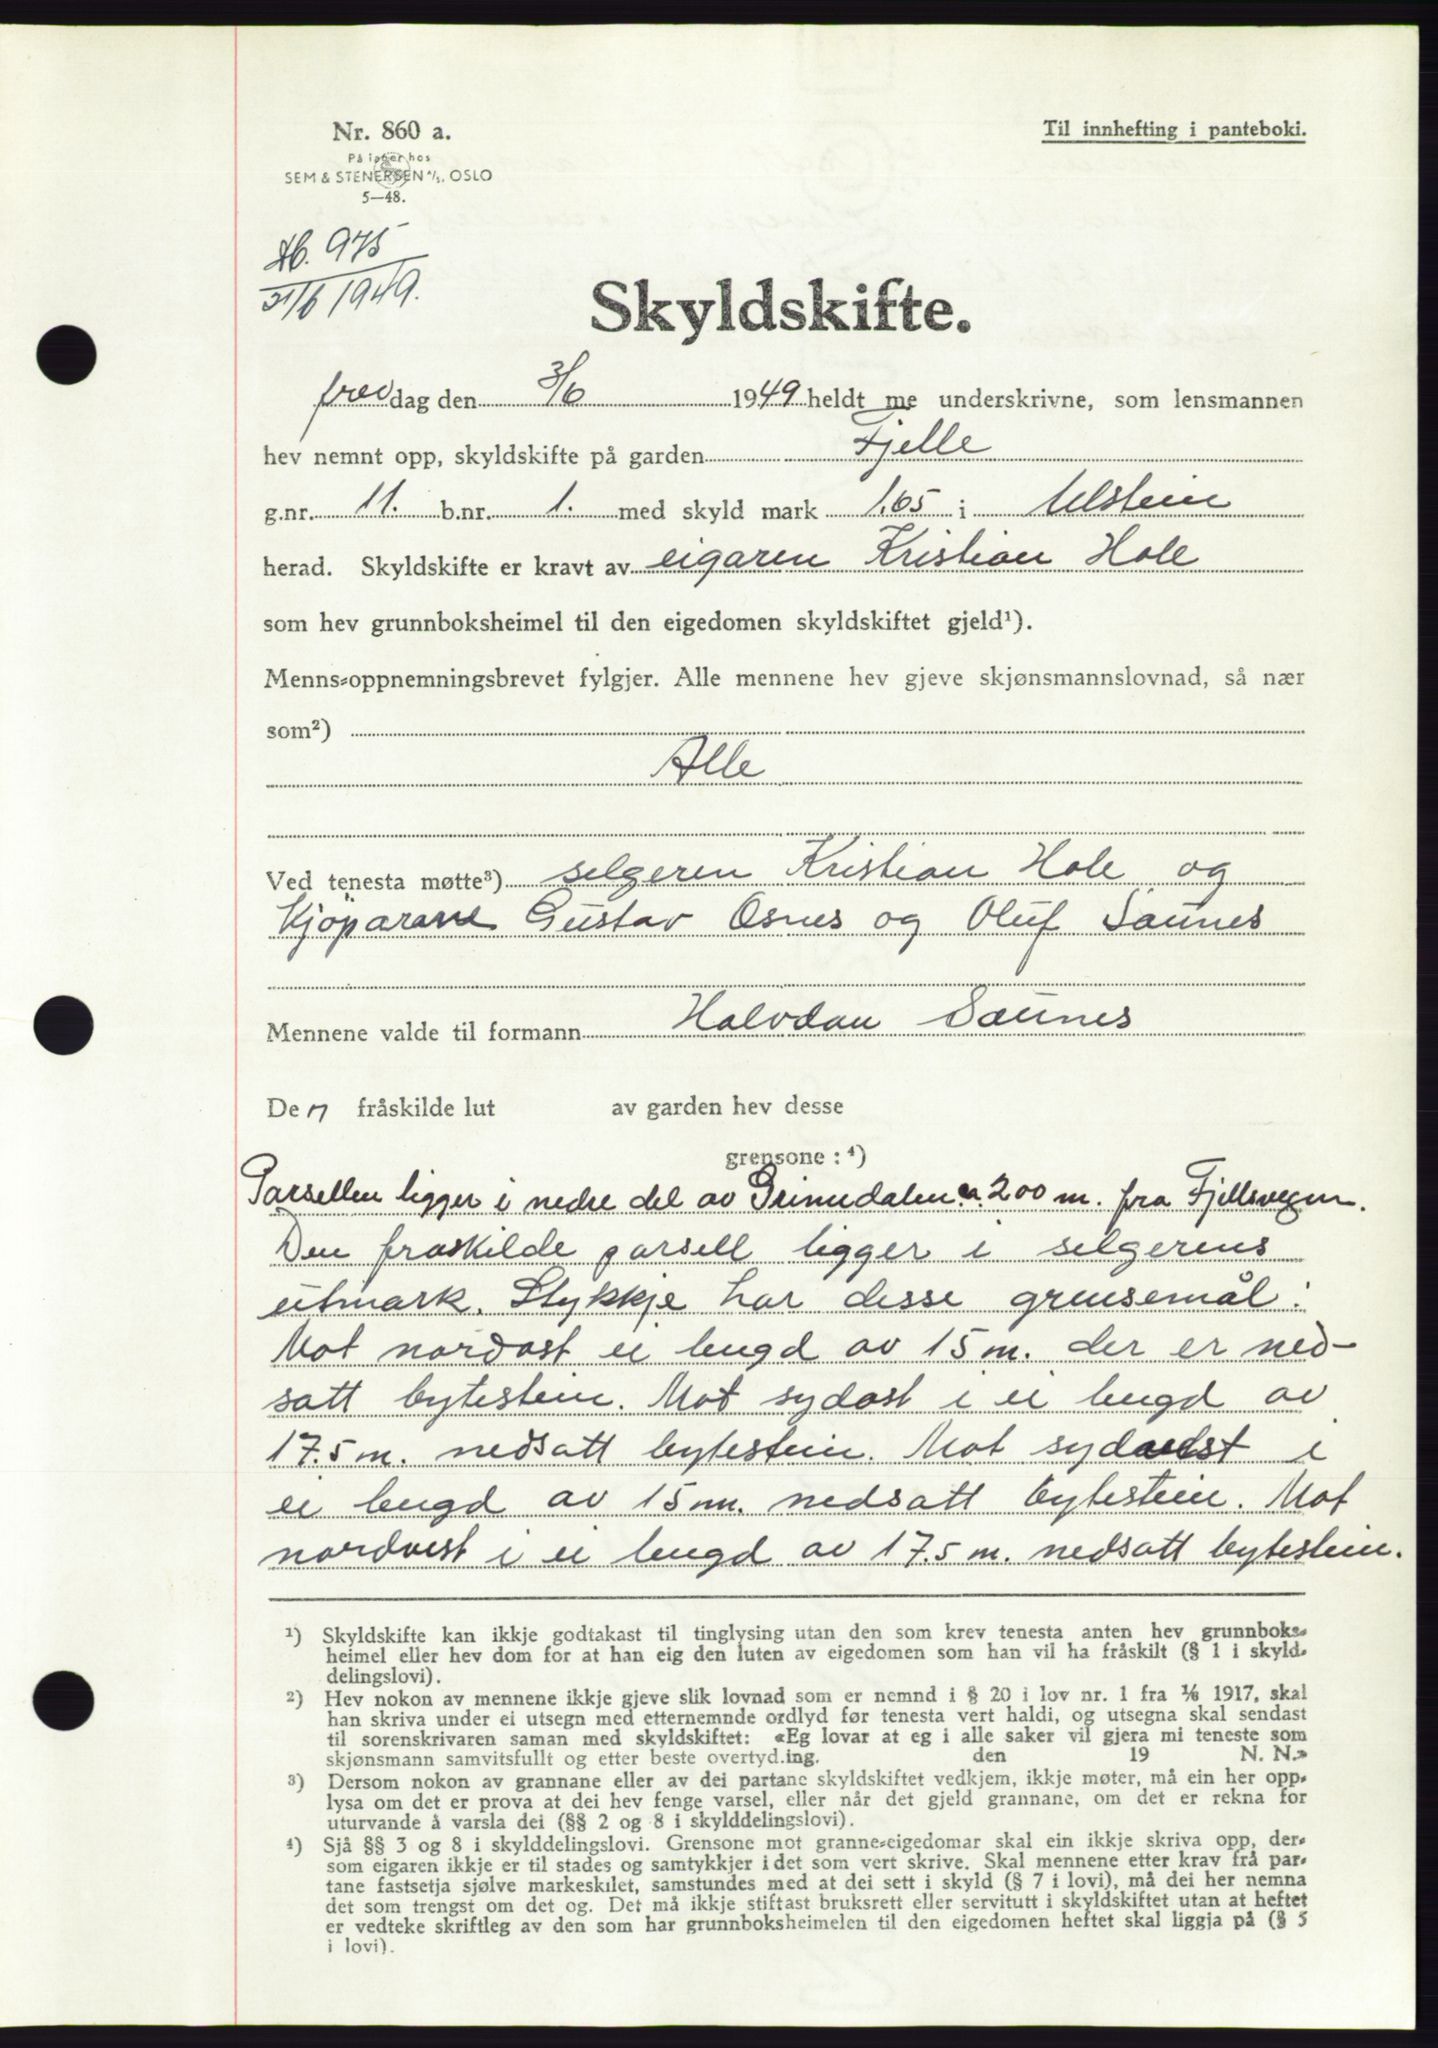 Nr. 860 a.
Til innhefting i panteboki.
På lager hos
SEM & STENERSEN A/S, OSLO
5—48.
Db. 975
21/6 1949.
Skyldskifte.
fredag den 3/6 1949 heldt me underskrivne, som lensmannen
hev nemnt opp, skyldskifte på garden Fjelle
g.nr. 11. b.nr. 1. med skyld mark 1,65 i Ulstein
herad. Skyldskifte er kravt av eigaren Kristian Hole
som hev grunnboksheimel til den eigedomen skyldskiftet gjeld¹).
Menns-oppnemningsbrevet fylgjer. Alle mennene hev gjeve skjønsmannslovnad, så nær
som²)
Alle
Ved tenesta møtte³) selgeren Kristian Hole og
Kjöparane Gustav Osnes og Oluf Saunes
Mennene valde til formann Halvdan Saunes
Den fråskilde lut av garden hev desse
grensone : ⁴)
Parsellen ligger i nedre del av Grimedalen ca. 200 m. fra Fjellsvegen.
Den fraskilde parsell ligger i selgerens
utmark. Stykkje har desse grensemål:
Mot nordost ei lengd av 15 m. der er ned-
satt bytestein. Mot sydost i ei lengd av
17.5 m. nedsatt bytestein. Mot sydvest i
ei lengd av 15 m. nedsatt bytestein. Mot
nordvest i ei lengd av 17.5 m. nedsatt bytestein.
¹) Skyldskifte kan ikkje godtakast til tinglysing utan den som krev tenesta anten hev grunnboks-
heimel eller hev dom for at han eig den luten av eigedomen som han vil ha fråskilt (§ 1 i skyld-
delingslovi).
²) Hev nokon av mennene ikkje gjeve slik lovnad som er nemnd i § 20 i lov nr. 1 fra 1/6 1917, skal
han skriva under ei utsegn med etternemnde ordlyd før tenesta vert haldi, og utsegna skal sendast
til sorenskrivaren saman med skyldskiftet: «Eg lovar at eg i alle saker vil gjera mi teneste som
skjønsmann samvitsfullt og etter beste overtyd.ing. den 19 N. N.»
³) Dersom nokon av grannane eller av dei partane skyldskiftet vedkjem, ikkje møter, må ein her opp-
lysa om det er prova at dei hev fenge varsel, eller når det gjeld grannane, om det er rekna for
uturvande å varsla dei (§§ 2 og 8 i skylddelingslovi).
⁴) Sjå §§ 3 og 8 i skylddelingslovi. Grensone mot granne-eigedomar skal ein ikkje skriva opp, der-
som eigaren ikkje er til stades og samtykkjer i det som vert skrive. Skal mennene etter krav frå par-
tane fastsetja sjølve markeskilet, samstundes med at dei sett i skyld (§ 7 i lovi), må dei her nemna
det som trengst om det og. Det må ikkje stiftast bruksrett eller servitutt i skyldskiftet utan at heftet
er vedteke skriftleg av den som har grunnboksheimelen til den eigedomen heftet skal liggja på (§ 5
i lovi).